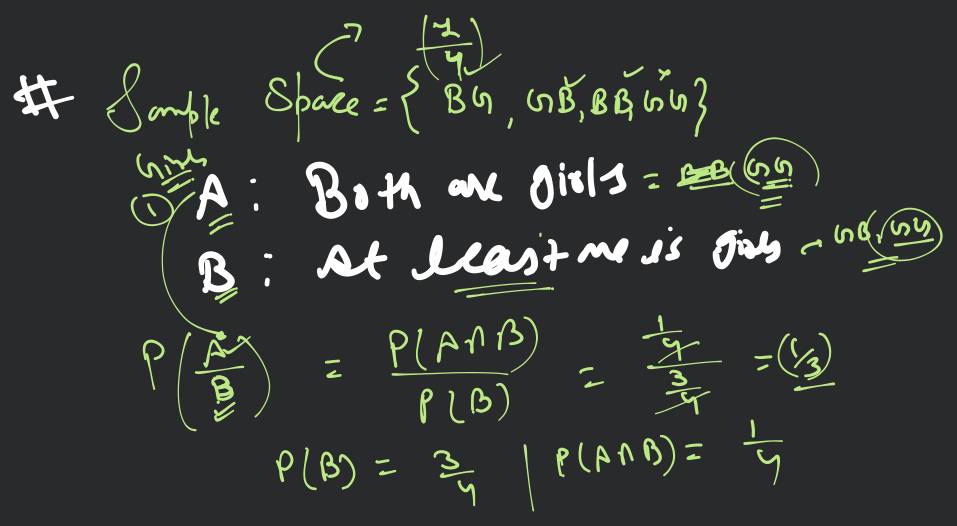 # Sample Space = { BG, GB, BB, GG }
Girls
① A : Both are girls = GG
B : At least one is girls → GB, GG
P(A/B) = P(A∩B)/P(B) = (1/4)/(3/4) = (1/3)
P(B) = 3/4 | P(A∩B) = 1/4